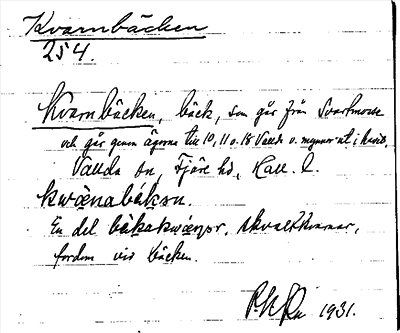 Kvarnbäcken
254.
Kvarnbäcken, bäck, som går från Svartmosse
och går genom ägorna till 10, 11 o. 18 Vallda o. mynnar ut i havet,
Vallda sn, Fjäre hd, Hall. l.
kwænabäksn.
En del bäkakwænər, skvaltkvarnar,
fordom vid bäcken.
1931.